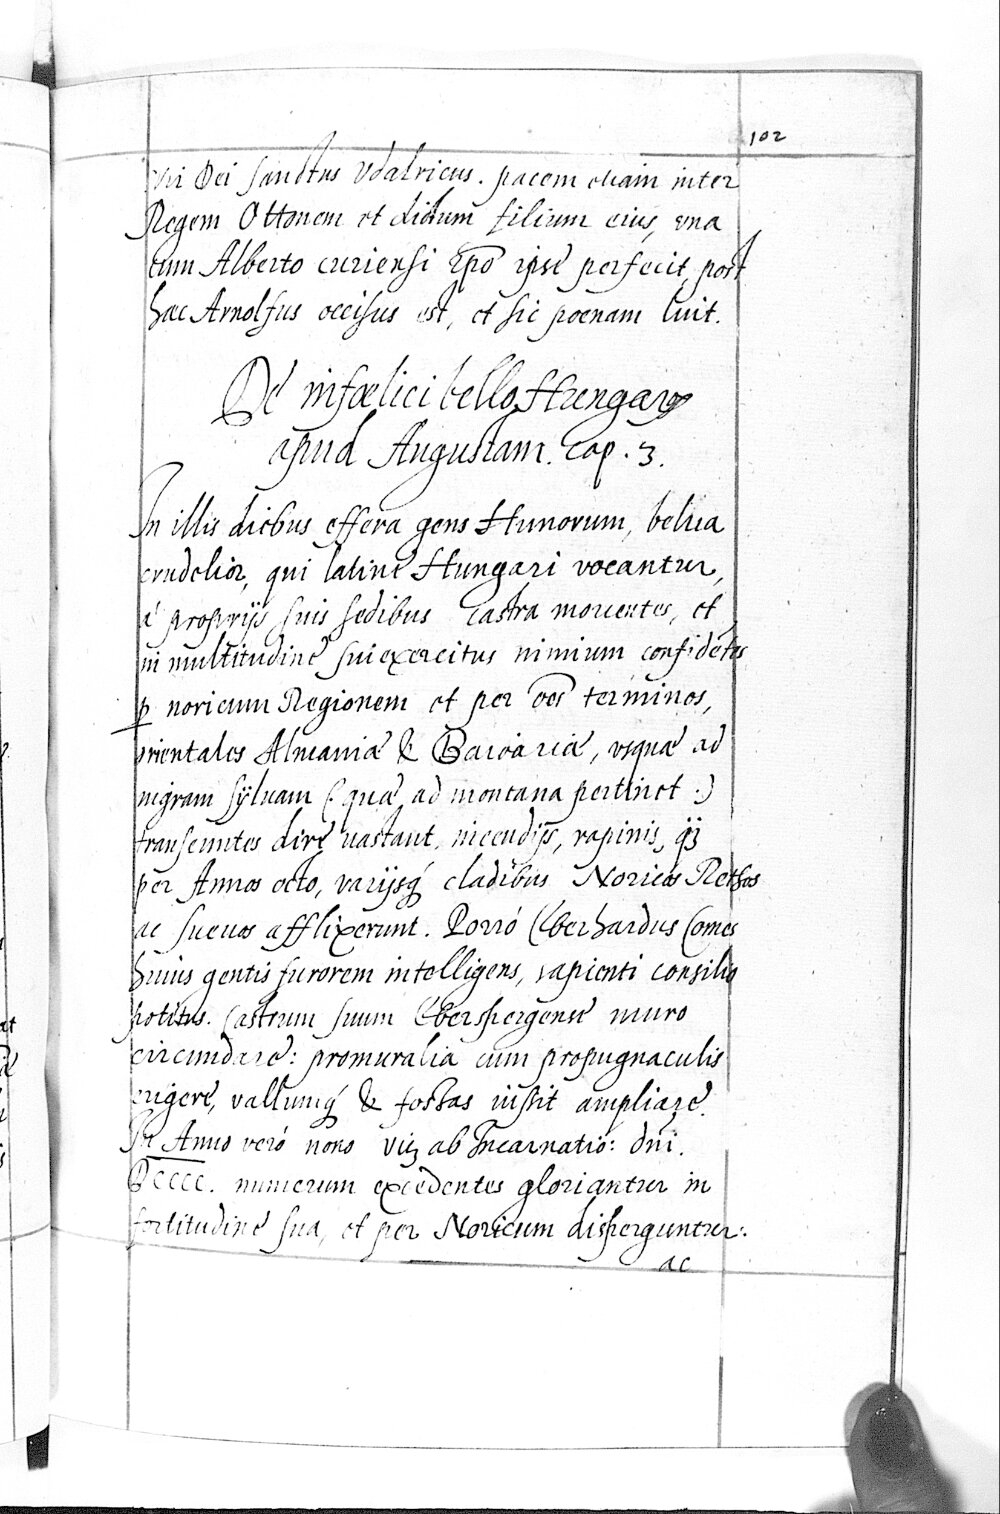 102
Vir Dei sanctus Vdalricus. pacem etiam inter
Regem Ottonem et dictum filium eius, vna
cum Alberto curiensi Epõ ipse perfecit, post
hæc Arnolfus occisus est, et sic poenam luit.
De infœlici bello Hungarorũ
apud Augustam. Cap. 3.
In illis diebus effera gens Hunorum, belua
crudelior, qui latine Hungari vocantur,
á proprijs suis sedibus castra mouentes, et
in multitudine sui exercitus nimium confidẽtes
ꝑ noricum Regionem et per oẽs terminos,
orientales Almaniæ & Baioariæ, vsque ad
nigram syluam (: quæ ad montana pertinet :)
transeuntes dire vastant, incendijs, rapinis, qꝫ
per Annos octo, varijsq́ cladibus Noricos Rethos
ac sueuos afflixerunt. Porró Eberhardus Comes
huius gentis furorem intelligens, sapienti consilio
potitus. Castrum suum Eberspergense muro
circumdare: promuralia cum propugnaculis
erigere, vallumq́ & fossas iussit ampliare.
In Anno veró nono viꝫ ab Incarnatio: dnĩ.
DCCCC. numerum excedentes gloriantur in
fortitudine sua, et per Noricum disperguntur:
ac